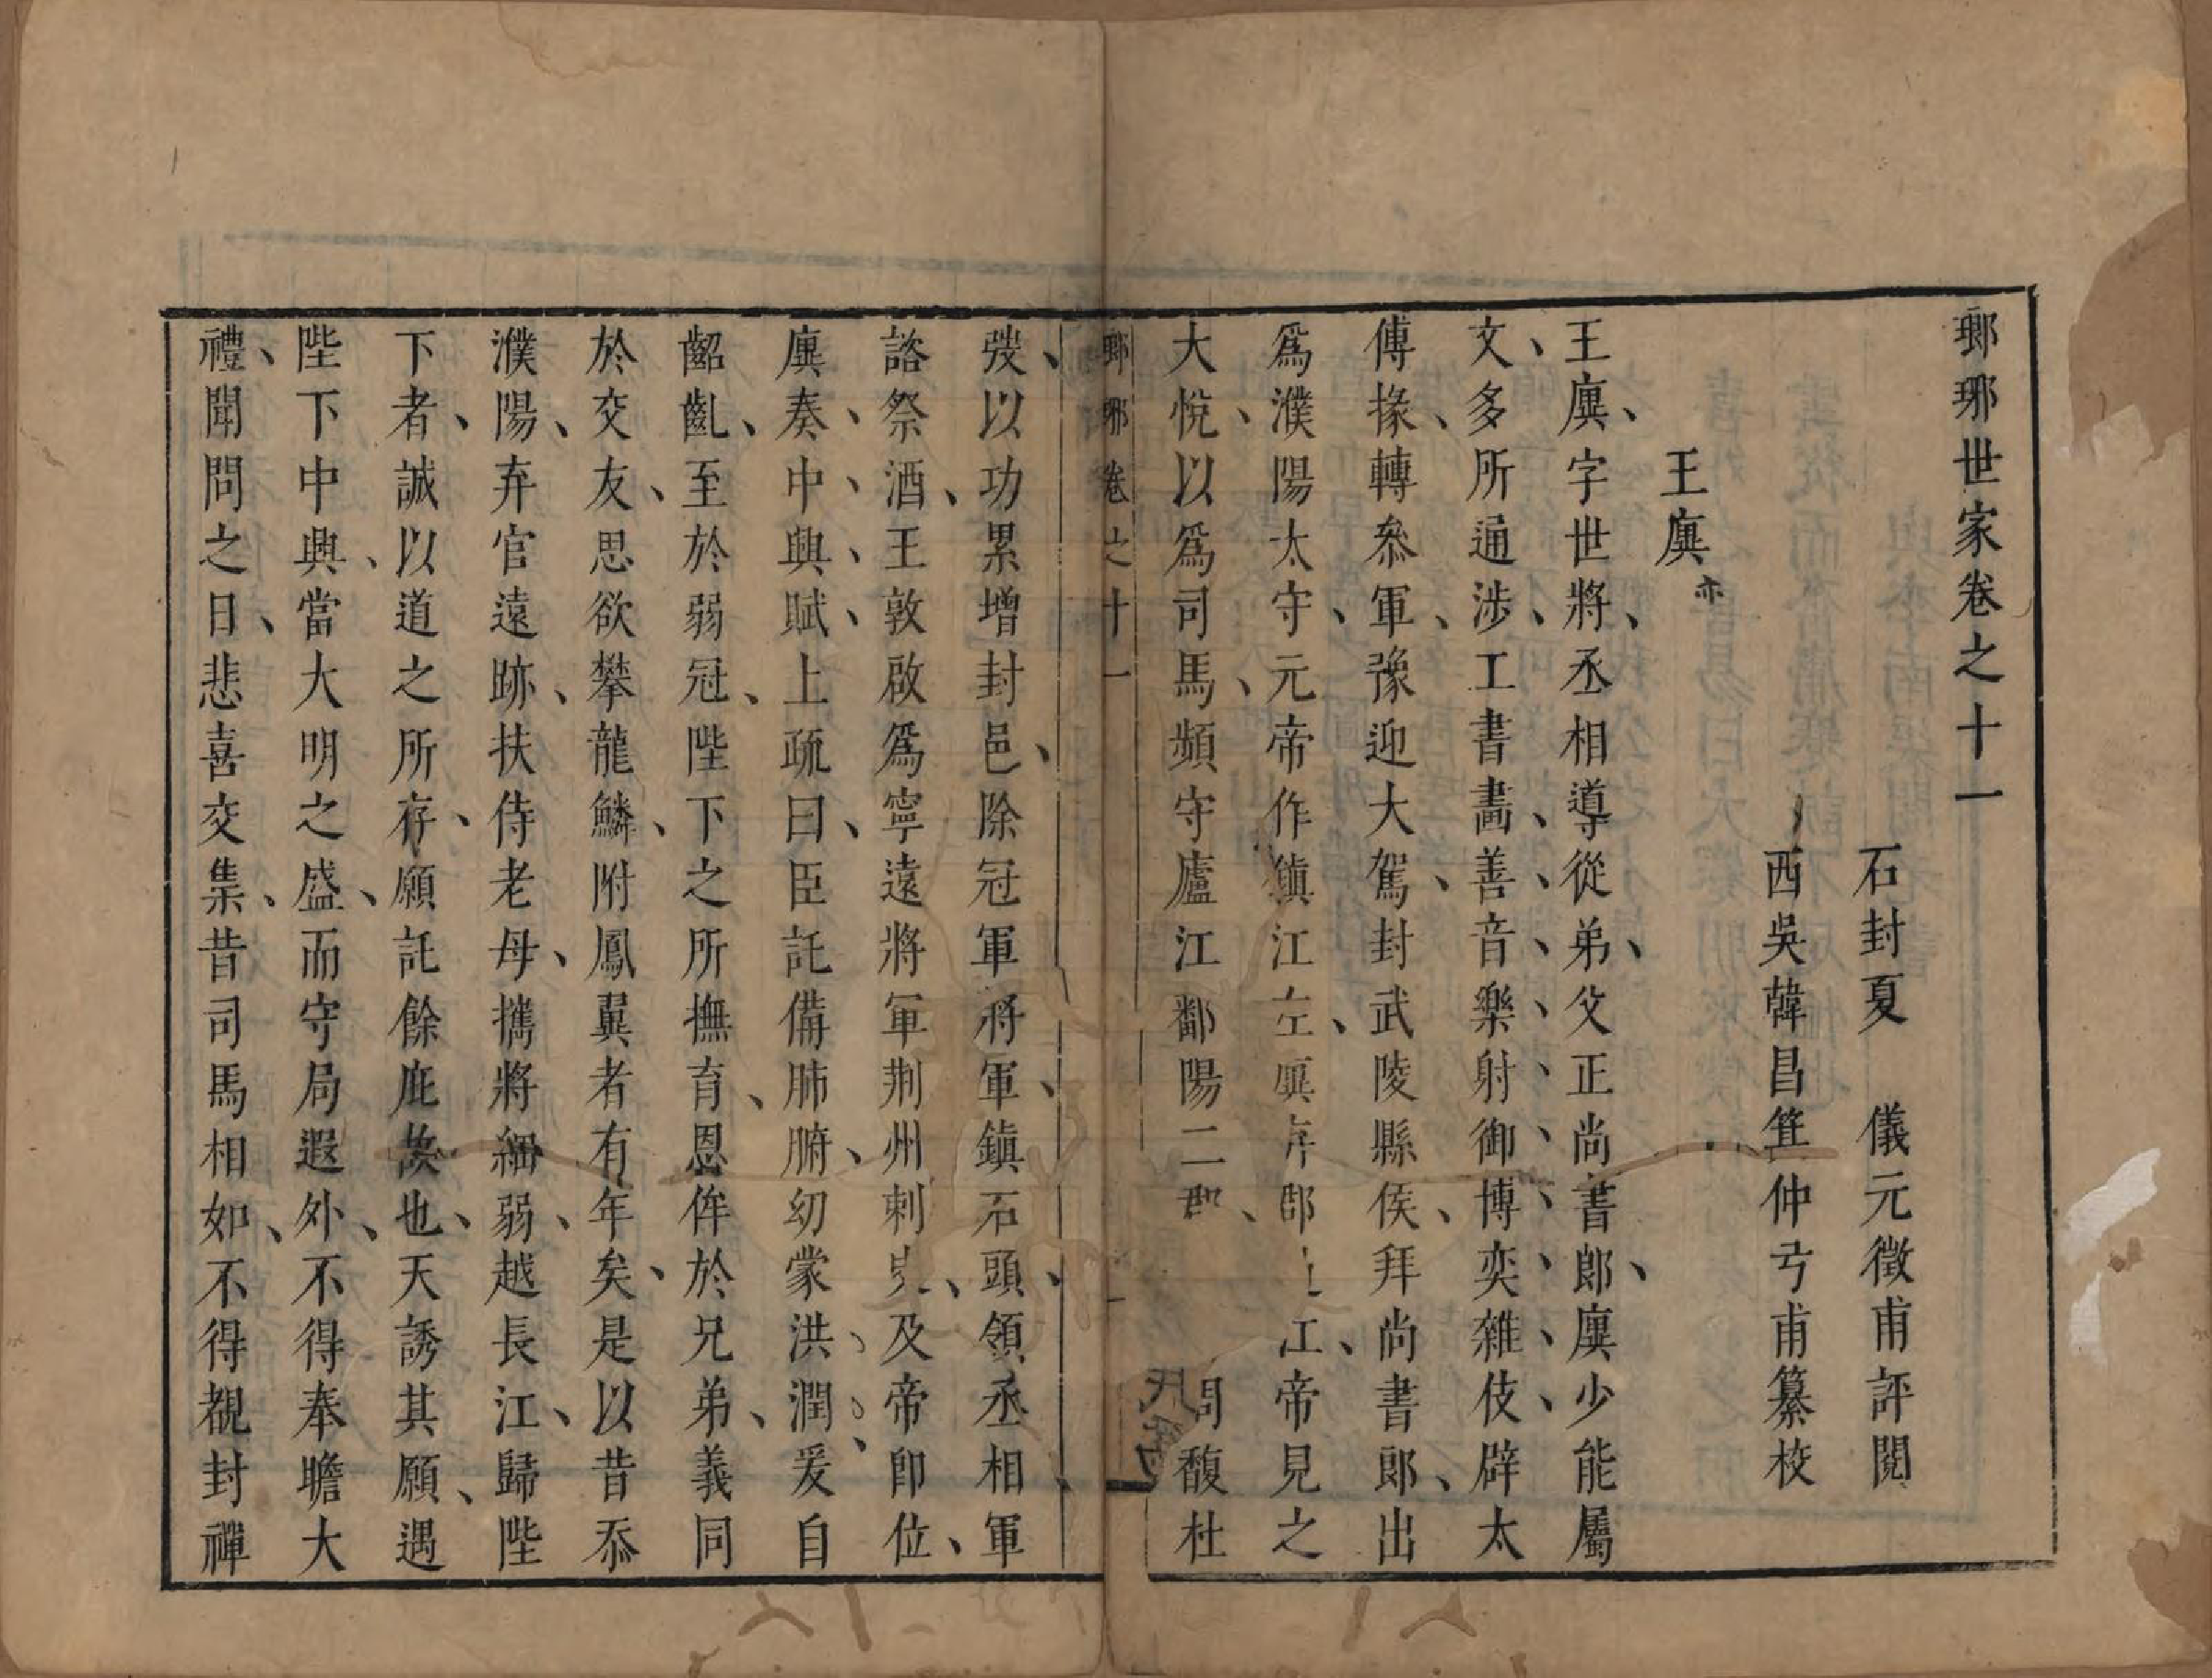 瑯琊世家卷之十一
石封夏　儀元徵甫評閱
西吳韓昌箕仲弓甫纂校
王廙
王廙字世將丞相導從弟父正尚書郎廙少能屬
文多所通涉工書畵善音樂射御博奕雜伎辟太
傅掾轉叅軍豫迎大駕封武陵縣侯拜尚書郎出
爲濮陽太守元帝作鎮江左廙弃郡江帝見之
大悅以爲司馬頻守廬江鄱陽二郡馥杜
瑯琊　卷之十一　一
弢以功累增封邑除冠軍將軍鎮石頭領丞相軍
諮祭酒王敦啟爲寧遠將軍荆州刺史及帝卽位
廙奏中興賦上疏曰臣託備肺腑幼蒙洪潤爰自
齠齓至於弱冠陛下之所撫育恩侔於兄弟義同
於交友思欲攀龍鱗附鳳翼者有年矣是以昔忝
濮陽弃官遠跡扶侍老母攜將細弱越長江歸陛
下者誠以道之所存願託餘庇故也天誘其願遇
陛下中興當大明之盛而守局遐外不得奉瞻大
禮聞問之日悲喜交集昔司馬相如不得覩封禪